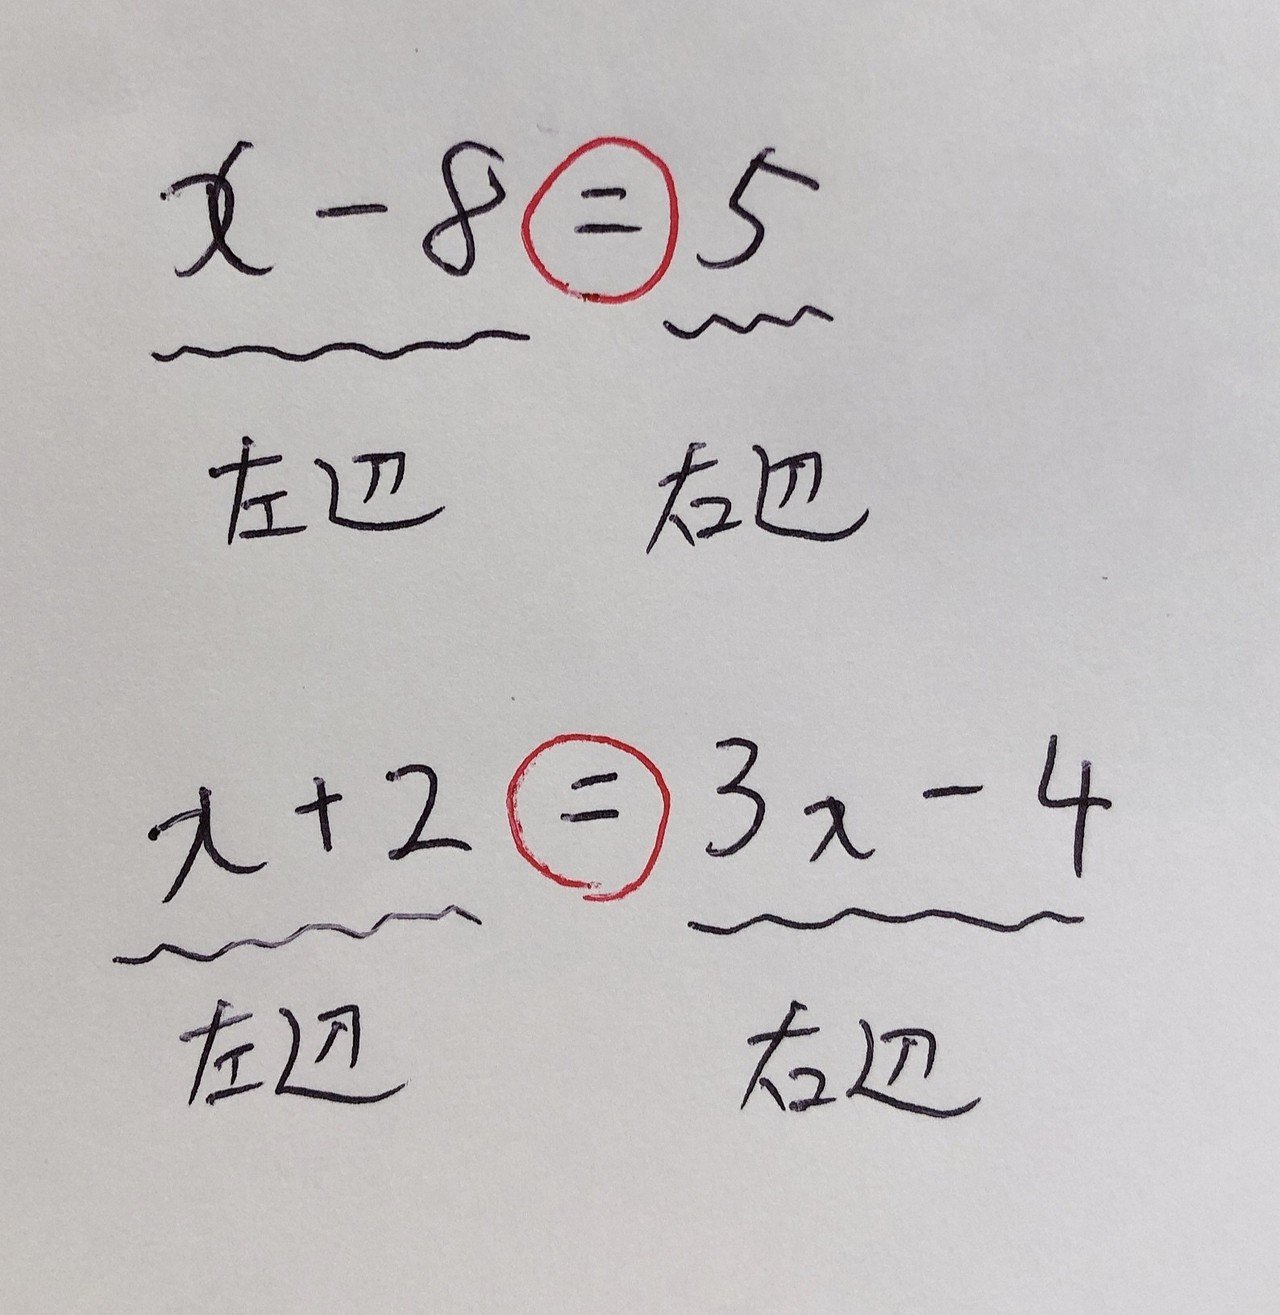 x - 8 = 5
左辺 右辺
x + 2 = 3x - 4
左辺 右辺